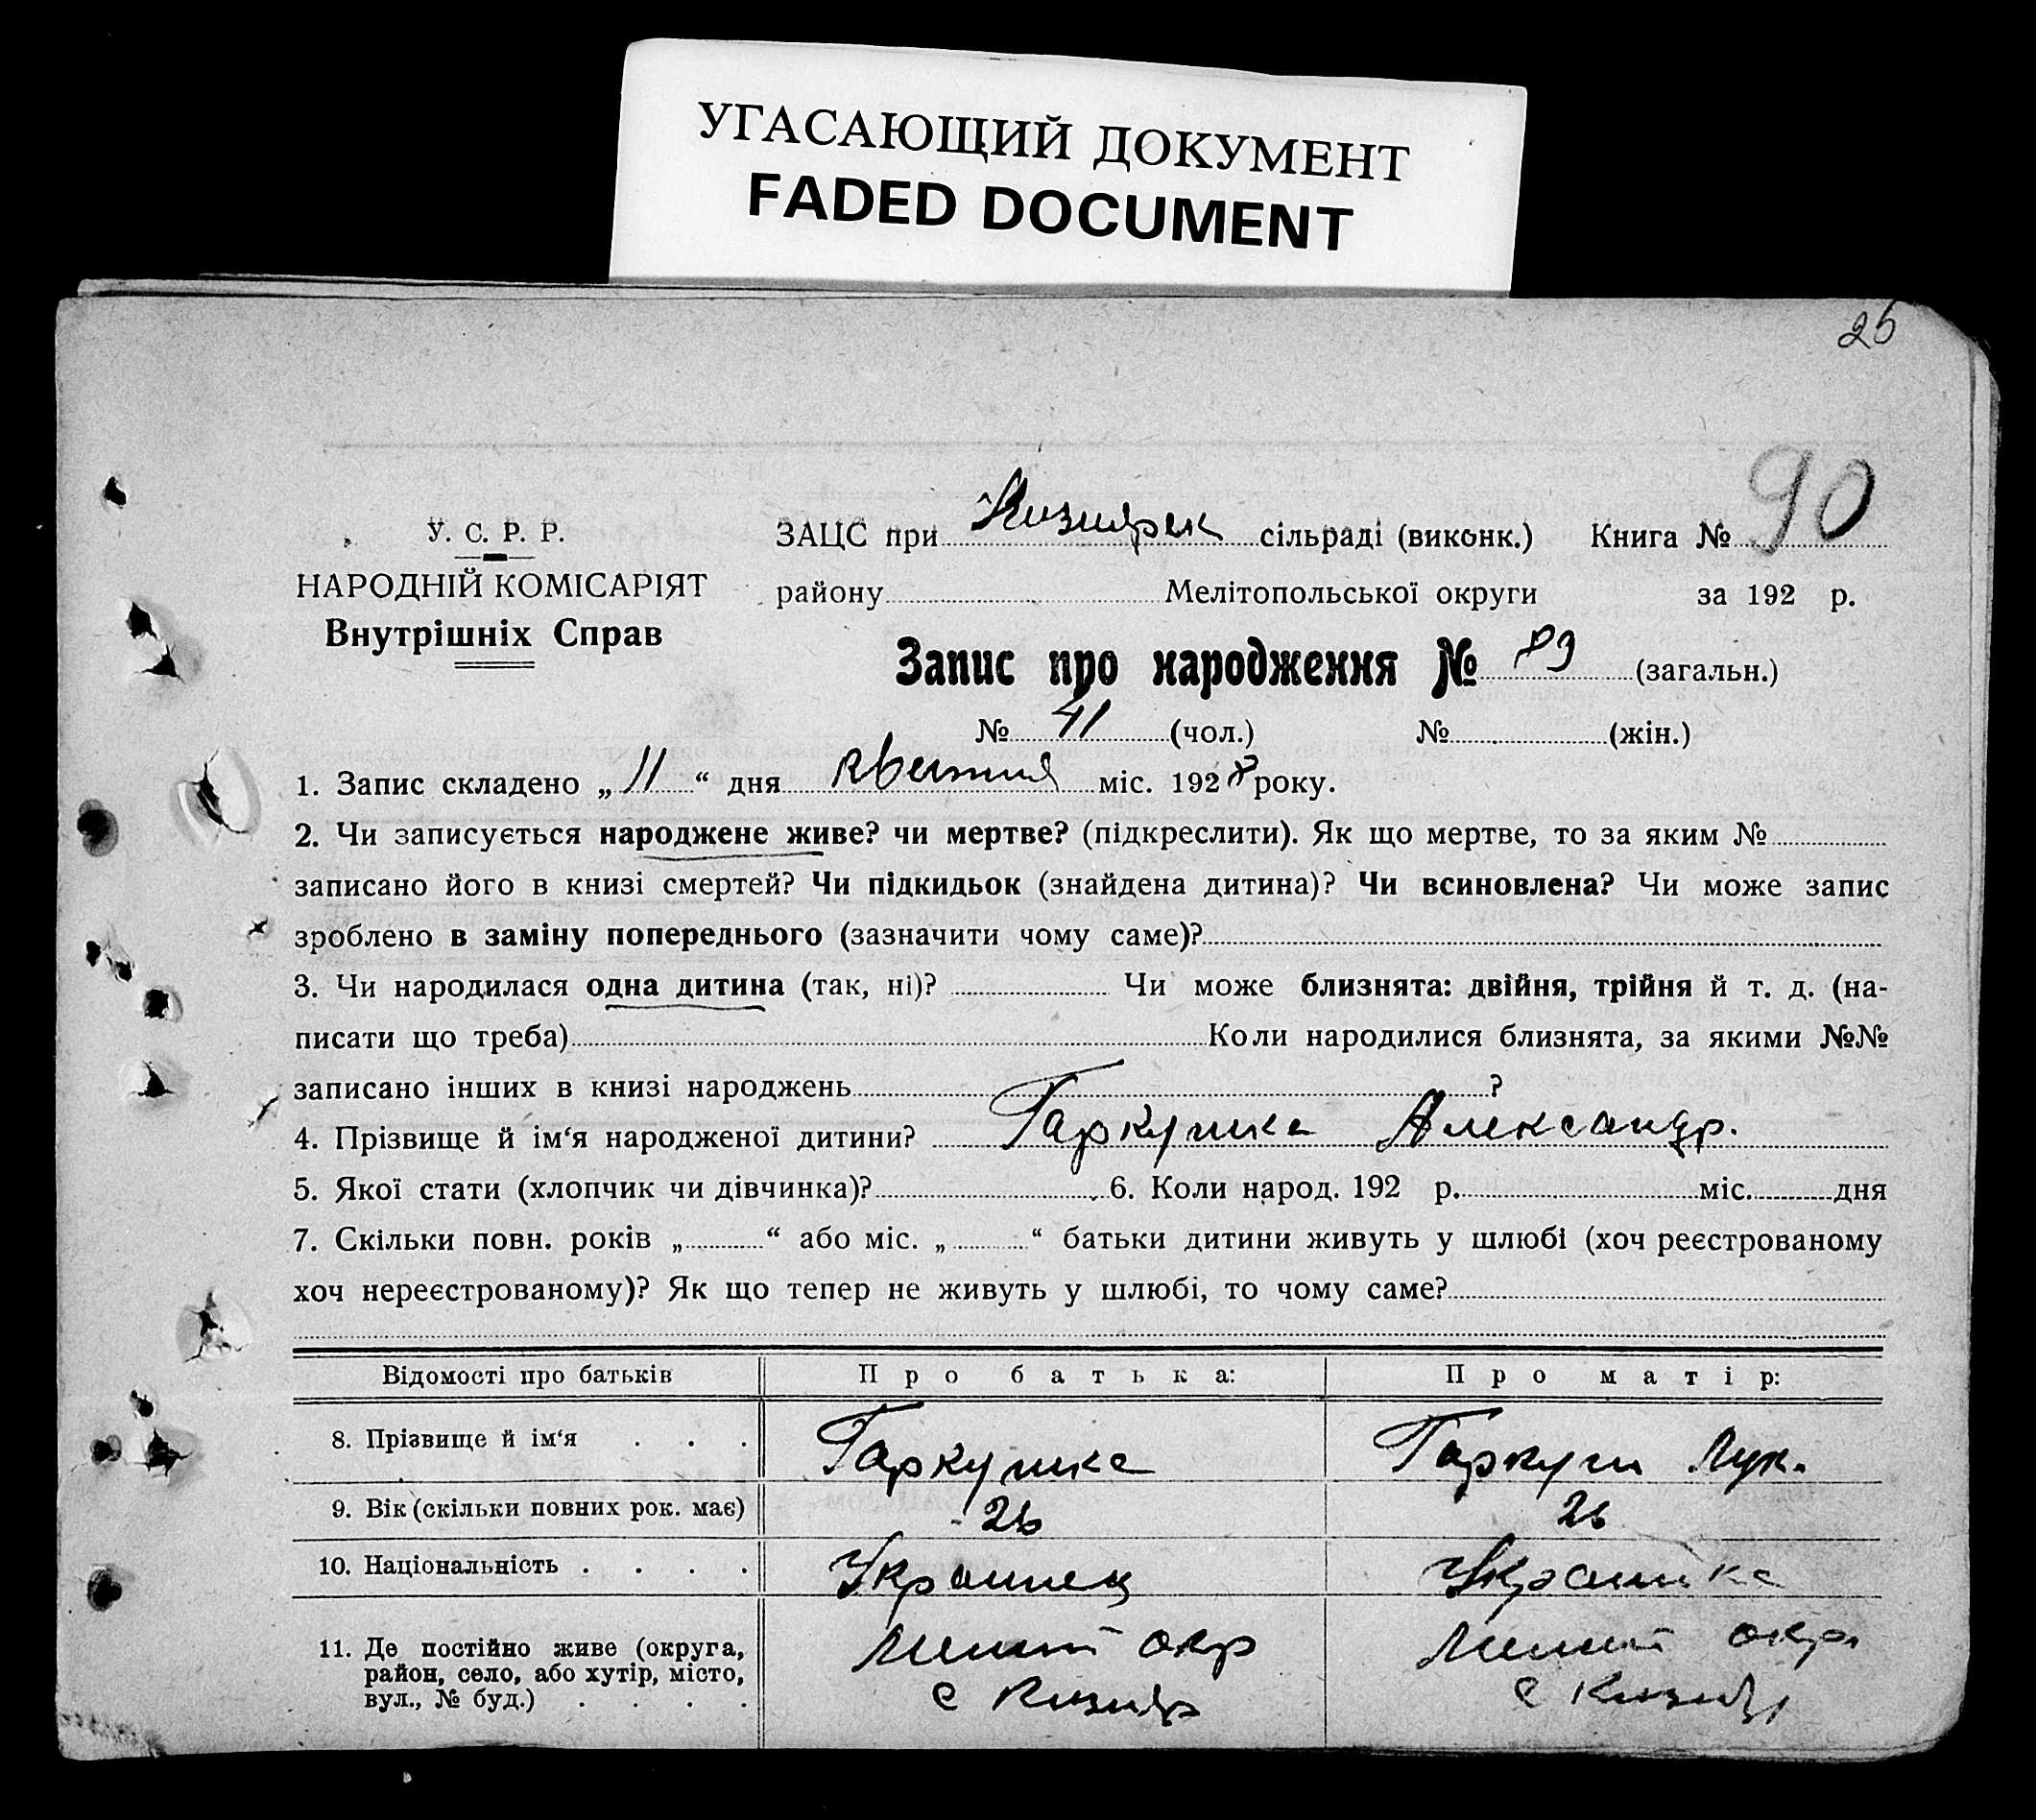 УГАСАЮЩИЙ ДОКУМЕНТ
FADED DOCUMENT
25
У. С. Р. Р.
НАРОДНІЙ КОМІСАРІЯТ
Внутрішніх Справ
ЗАЦС при Кизиярск сільраді (виконк.) Книга № 90
району Мелітопольської округи за 192 р.
Запис про народження № 89 (загальн.)
№ 41 (чол.) № (жін.)
1. Запис складено „ 11 “ дня квітня міс. 1928 року.
2. Чи записується народжене живе? чи мертве? (підкреслити). Як що мертве, то за яким №
записано його в книзі смертей? Чи підкидьок (знайдена дитина)? Чи всиновлена? Чи може запис
зроблено в заміну попереднього (зазначити чому саме)?
3. Чи народилася одна дитина (так, ні)? Чи може близнята: двійня, трійня й т. д. (на-
писати що треба) Коли народилися близнята, за якими №№
записано інших в книзі народжень ?
4. Прізвище й ім‘я народженої дитини? Гаркушка Александр.
5. Якої стати (хлопчик чи дівчинка)? 6. Коли народ. 192 р. міс. дня
7. Скільки повн. років „ “ або міс. „ “ батьки дитини живуть у шлюбі (хоч реєстрованому
хоч нереєстрованому)? Як що тепер не живуть у шлюбі, то чому саме?
Відомості про батьків Про батька: Про матір:
8. Прізвище й ім‘я . . . Гаркушка Лук.
9. Вік (скільки повних рок. має) 26 26
10. Національність . . . . Украинец Украинка
11. Де постійно живе (округа, Мелит окр Мелит окр
район, село, або хутір, місто, с Кизияр с Кизияр
вул., № буд.) . . . .